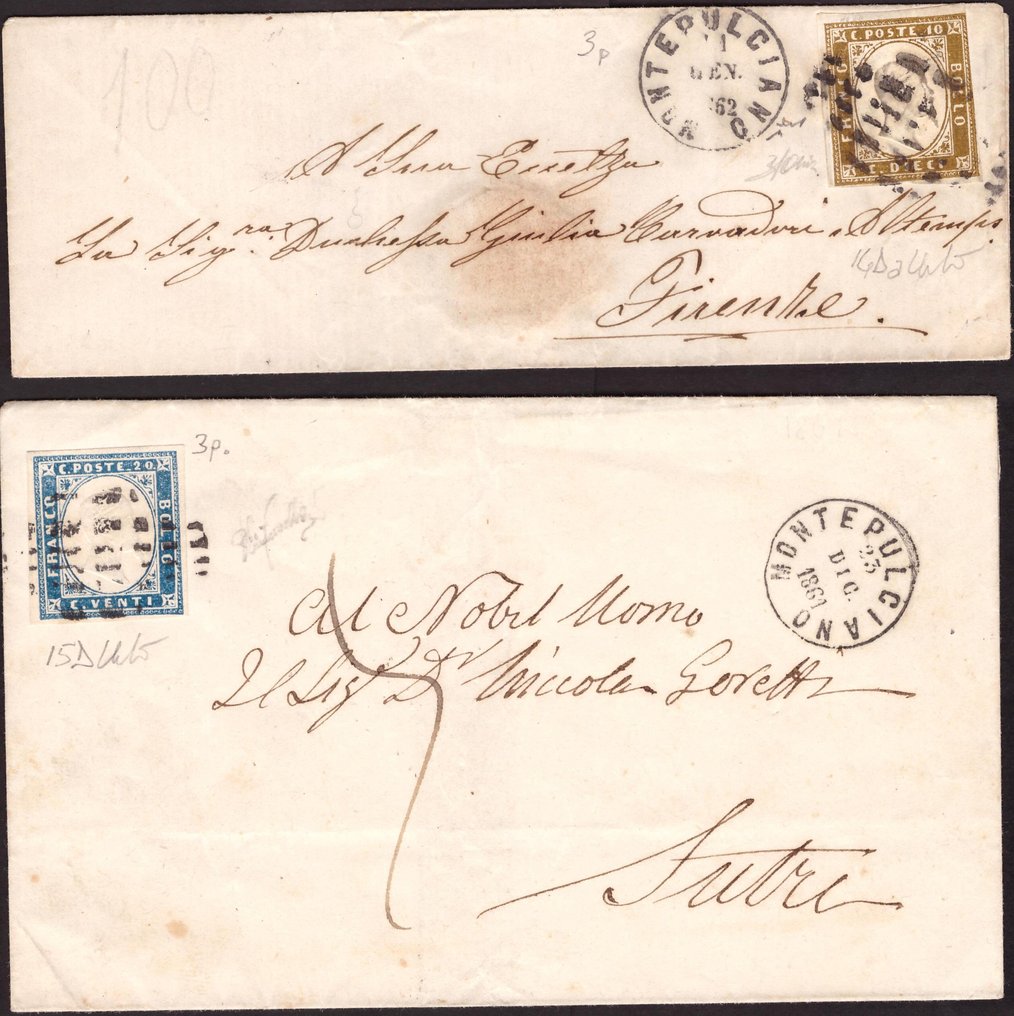 100
3p
MONTEPULCIANO
GEN.
1862
C. POSTE 10
FRANCO
BOLLO
C. DIECI
A Sua Eccellza
La Sig.ra Duchessa Giulia Altemps
Firenze.
3p.
C. POSTE 20
FRANCO
BOLLO
C. VENTI
MONTEPULCIANO
23
DIC
1861
Al Nobil Uomo
Il Sig Dr Niccola Goretti
Sutri